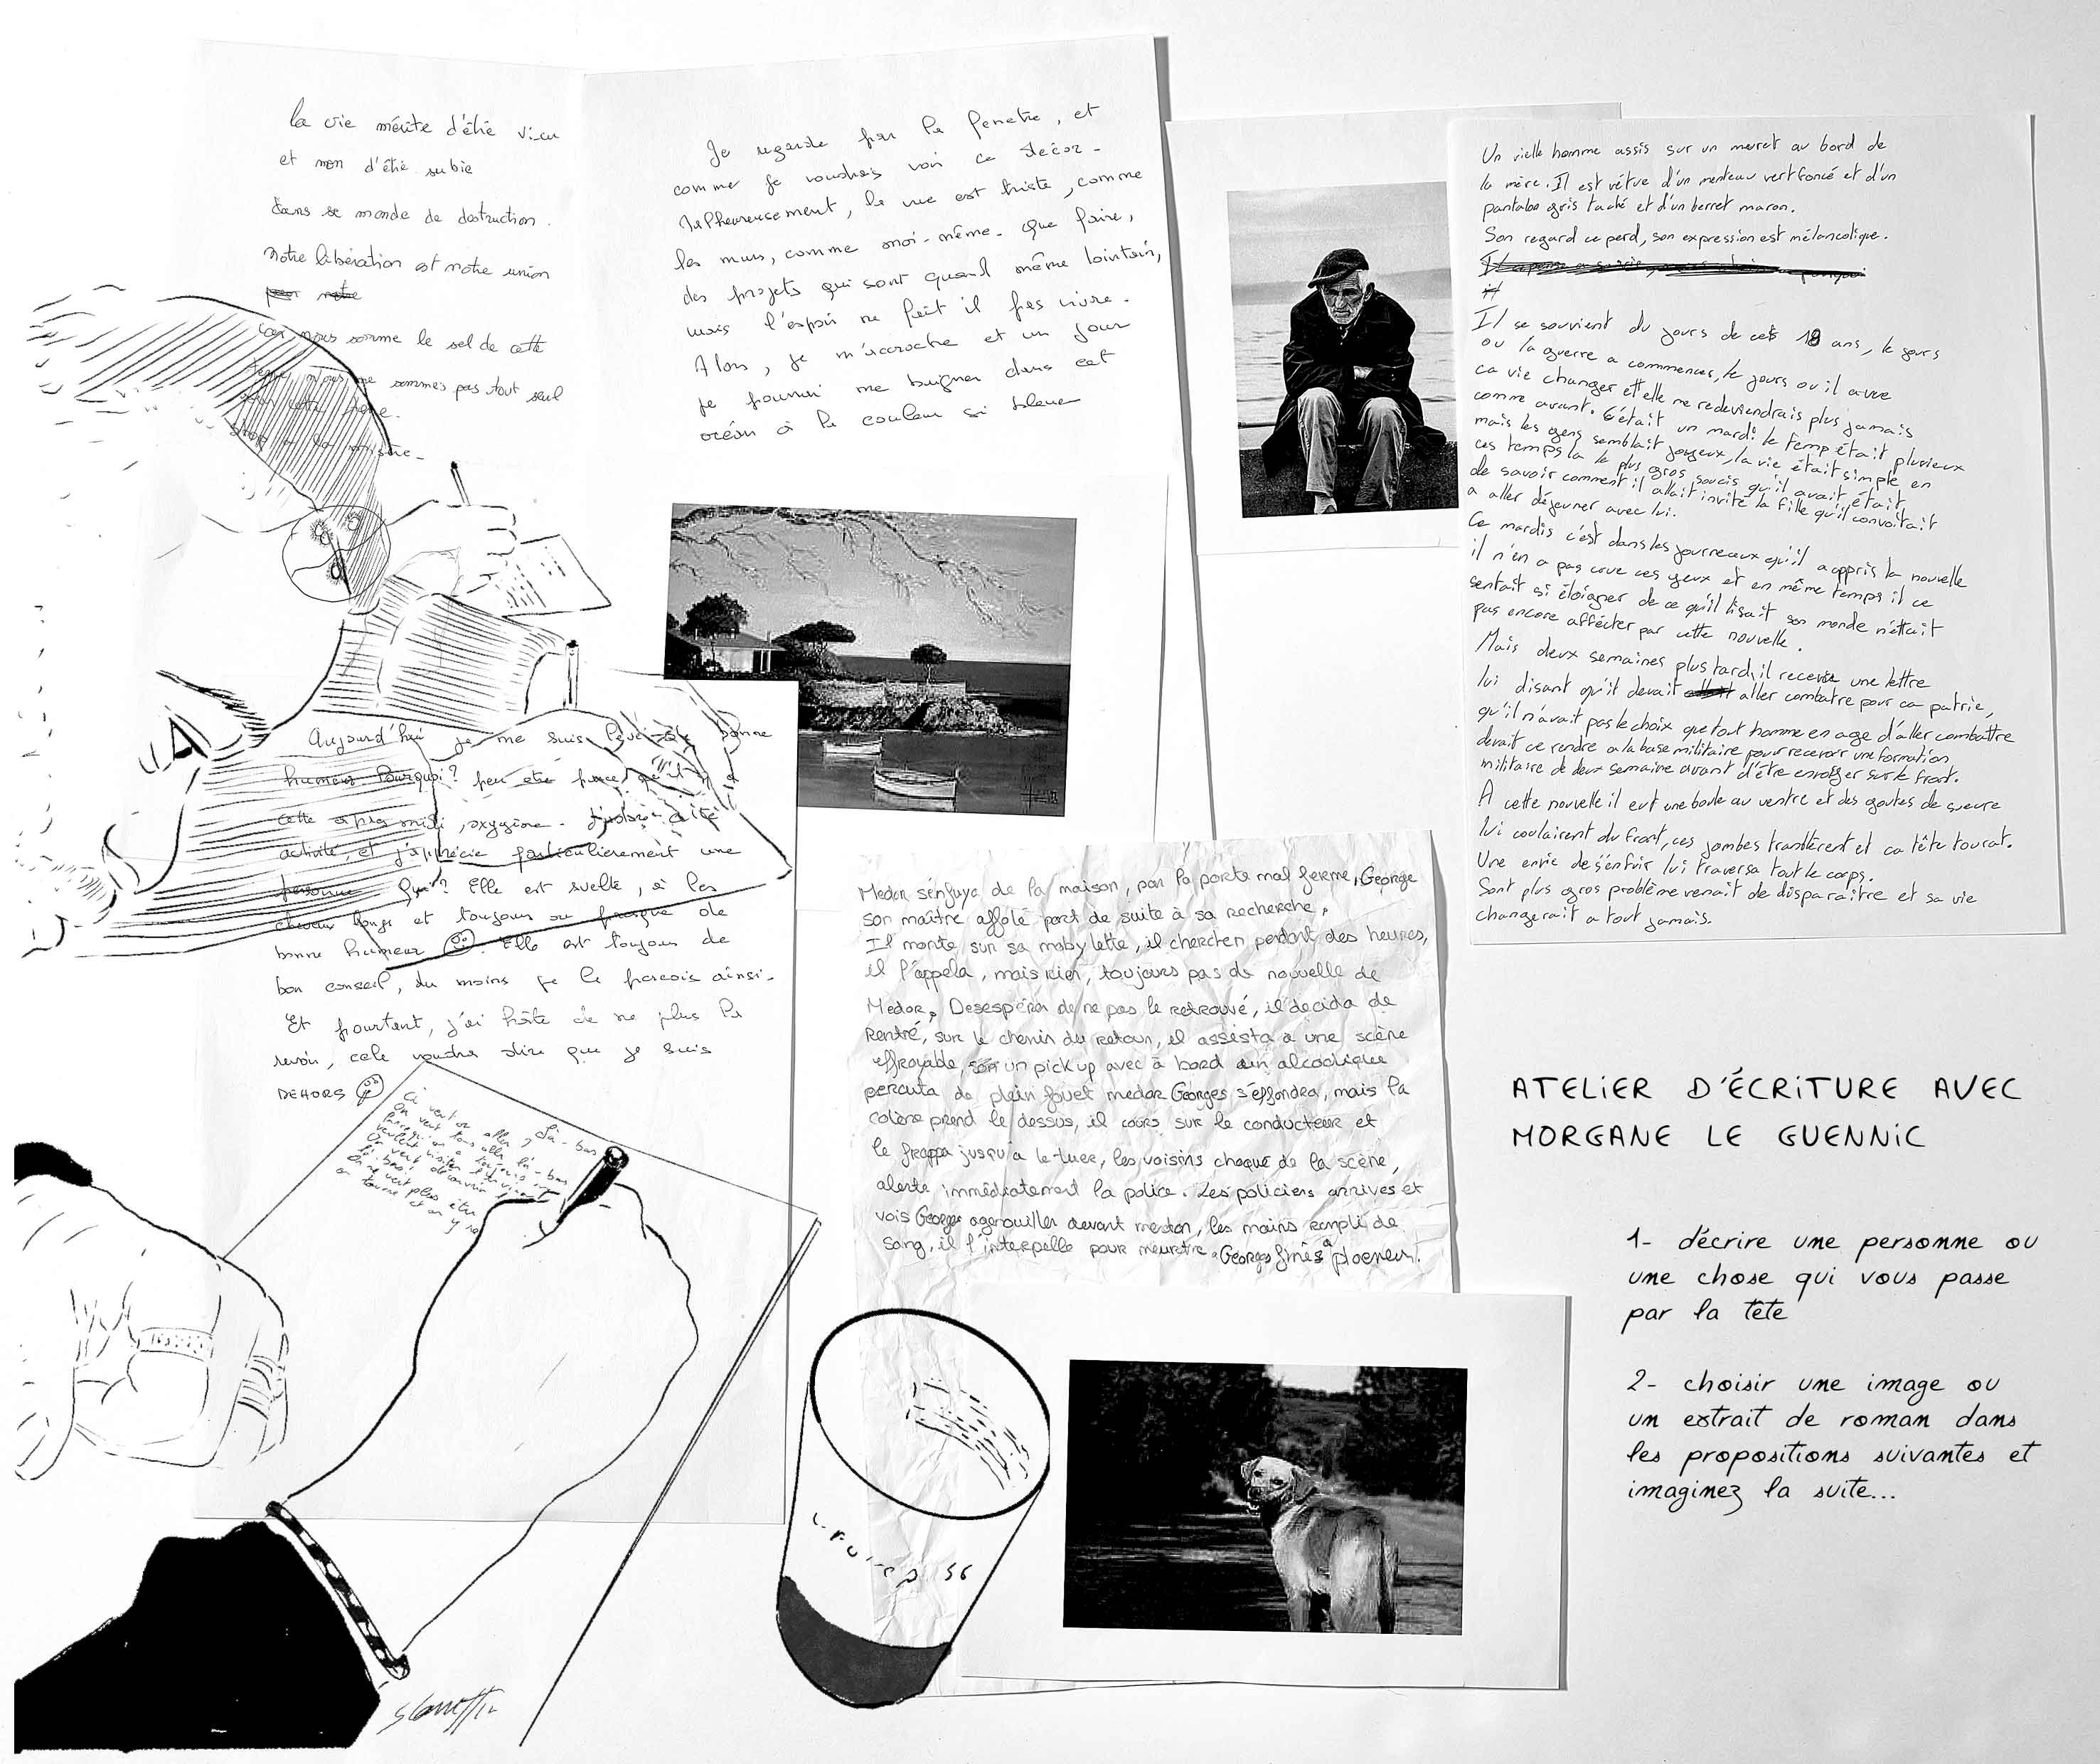 la vie mérite d'être vécu
et non d'être subie
dans se monde de destruction.
Notre libération est notre union
car nous somme le sel de cette
terre nous ne sommes pas tout seul
dans cette
stop a la misère_
Je regarde par la fenetre, et
comme je voudrais voir ce decor_
Malheureusement, la vue est triste, comme
les murs, comme moi-même_ Que faire,
des projets qui sont quand même lointain,
mais l'espoir ne fait il pas vivre_
Alors, je m'accroche et un jour
je pourrai me baigner dans cet
océan à la couleur si bleue
Un vielle homme assis sur un meuret au bord de
la mère. Il est vétue d'un menteau vert foncé et d'un
pantalon gris taché et d'un berret maron.
Son regard ce perd, son expression est mélancolique.
Il se souvient du jours de cets 18 ans, le jours
ou la guerre a commencer, le jours ou il a vue
ca vie changer et elle ne redeviendrais plus jamais
comme avant. C'était un mardi le temp était pluvieux
mais les gens semblait joyeux, la vie était simple en
ces temps la le plus gros soucis qu'il avait était
de savoir comment il allait invité la fille qu'il convoitait
a aller déjeuner avec lui.
Ce mardis c'est dans les journeaux qu'il a appris la nouvelle
il n'en a pas crue ces yeux et en même temps il ce
sentait si éloigner de ce qu'il lisait son monde n'était
pas encore affécter par cette nouvelle.
Mais deux semaines plus tard, il receva une lettre
lui disant qu'il devait aller combatre pour ca patrie,
qu'il n'avait pas le choix que tout homme en age d'aller combattre
devait ce rendre a la base militaire pour recevoir une formation
militaire de deux semaine avant d'être envoyer sur le front.
A cette nouvelle il eut une boule au ventre et des goutes de sueure
lui coulairent du front, ces jambes tranblèrent et ca tête tourat.
Une envie de s'enfuir lui traversa tout le corps.
Sont plus gros problème venait de disparaitre et sa vie
changerait a tout jamais.
Aujourd'hui je me suis levé de bonne
humeur Pourquoi? peu etre parce qu'il y a
cette après midi, oxygène_ J'adore cette
activité, et j'apprécie particulièrement une
personne Qui? Elle est svelte, à les
cheveux longs et toujours ou presque de
bonne humeur Elle est toujours de
bon conseil, du moins je le percois ainsi_
Et pourtant, j'ai hâte de ne plus la
revoir, cela voudra dire que je suis
DEHORS
Medor s'enfuya de la maison, par la porte mal fermé, George
son maître affolé part de suite à sa recherche.
Il monte sur sa mobylette, il chercher pendant des heures,
il l'appela, mais rien, toujours pas de nouvelle de
Medor. Desespérer de ne pas le retrouvé, il décida de
Rentré, sur le chemin du retour, il assista a une scène
effroyable, un pick up avec à bord un alcoolique
percuta de plein fouet medor Georges s'effondra, mais la
colère prend le dessus, il cours sur le conducteur et
le frappa jusqu'à le tuer, les voisins choqué de la scène,
alerte immédiatement la police. Les policiers arrives et
vois George agenouiller devant medor, les mains rempli de
sang, il l'interpelle pour meurtre. Georges finis a ploemeur.
ATELIER D'ÉCRITURE AVEC
MORGANE LE GUENNIC
1- décrire une personne ou
une chose qui vous passe
par la tête
2- choisir une image ou
un extrait de roman dans
les propositions suivantes et
imaginez la suite...